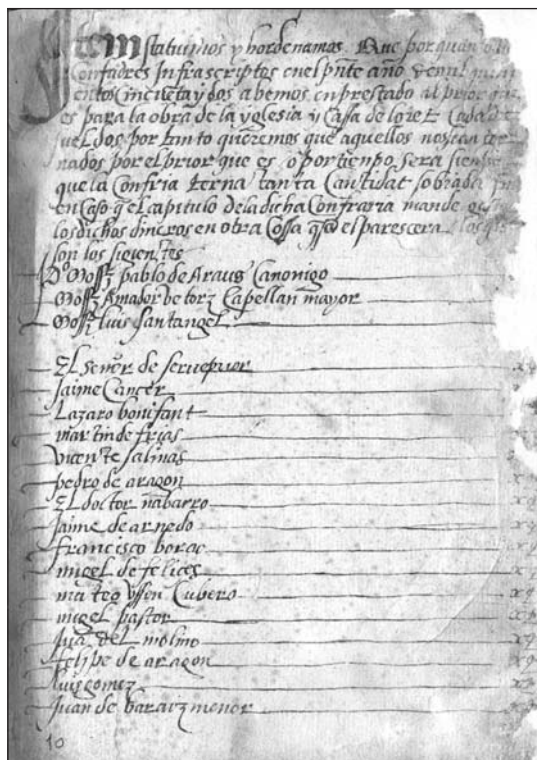 Item statuimos y hordenamos. Que por quanto
Confadres Infrascriptos en el pnte año de mil quini
entos Cincuenta y dos abemos enprestado al prior que
es para la obra de la yglesia y Cassa de loret Cada
sueldos por tanto queremos que aquellos nos sean tor
nados por el prior que es o por tiempo sera siendo
que la Confria terna tanta Cantidat sobrada
en Caso q el capitulo de la dicha Confraria mande
los dichos dineros en otra Cossa q el parescera los q
son los siguientes
Pablo de Araus Canonigo
Amador de torz Capellan mayor
luis santangel
El señor de
Jaime Cancer
Lazaro bonifant
martin de frias
vicente salinas
pedro de aragon
El doctor nabarro
Jaime de arnedo
francisco borac
migel de felices
mateo Cubero
migel pastor
Jua del molino
felipe de aragon
luis gomez
Juan de baraiz menor
10